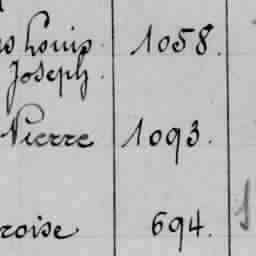 Louis 1058.
Joseph.
Pierre 1093.
roise 694.